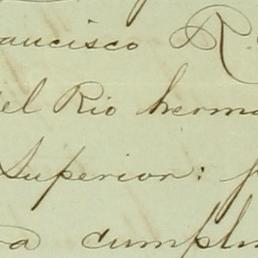 ancisco R.
del Rio herma
Superior: f
a cumpl